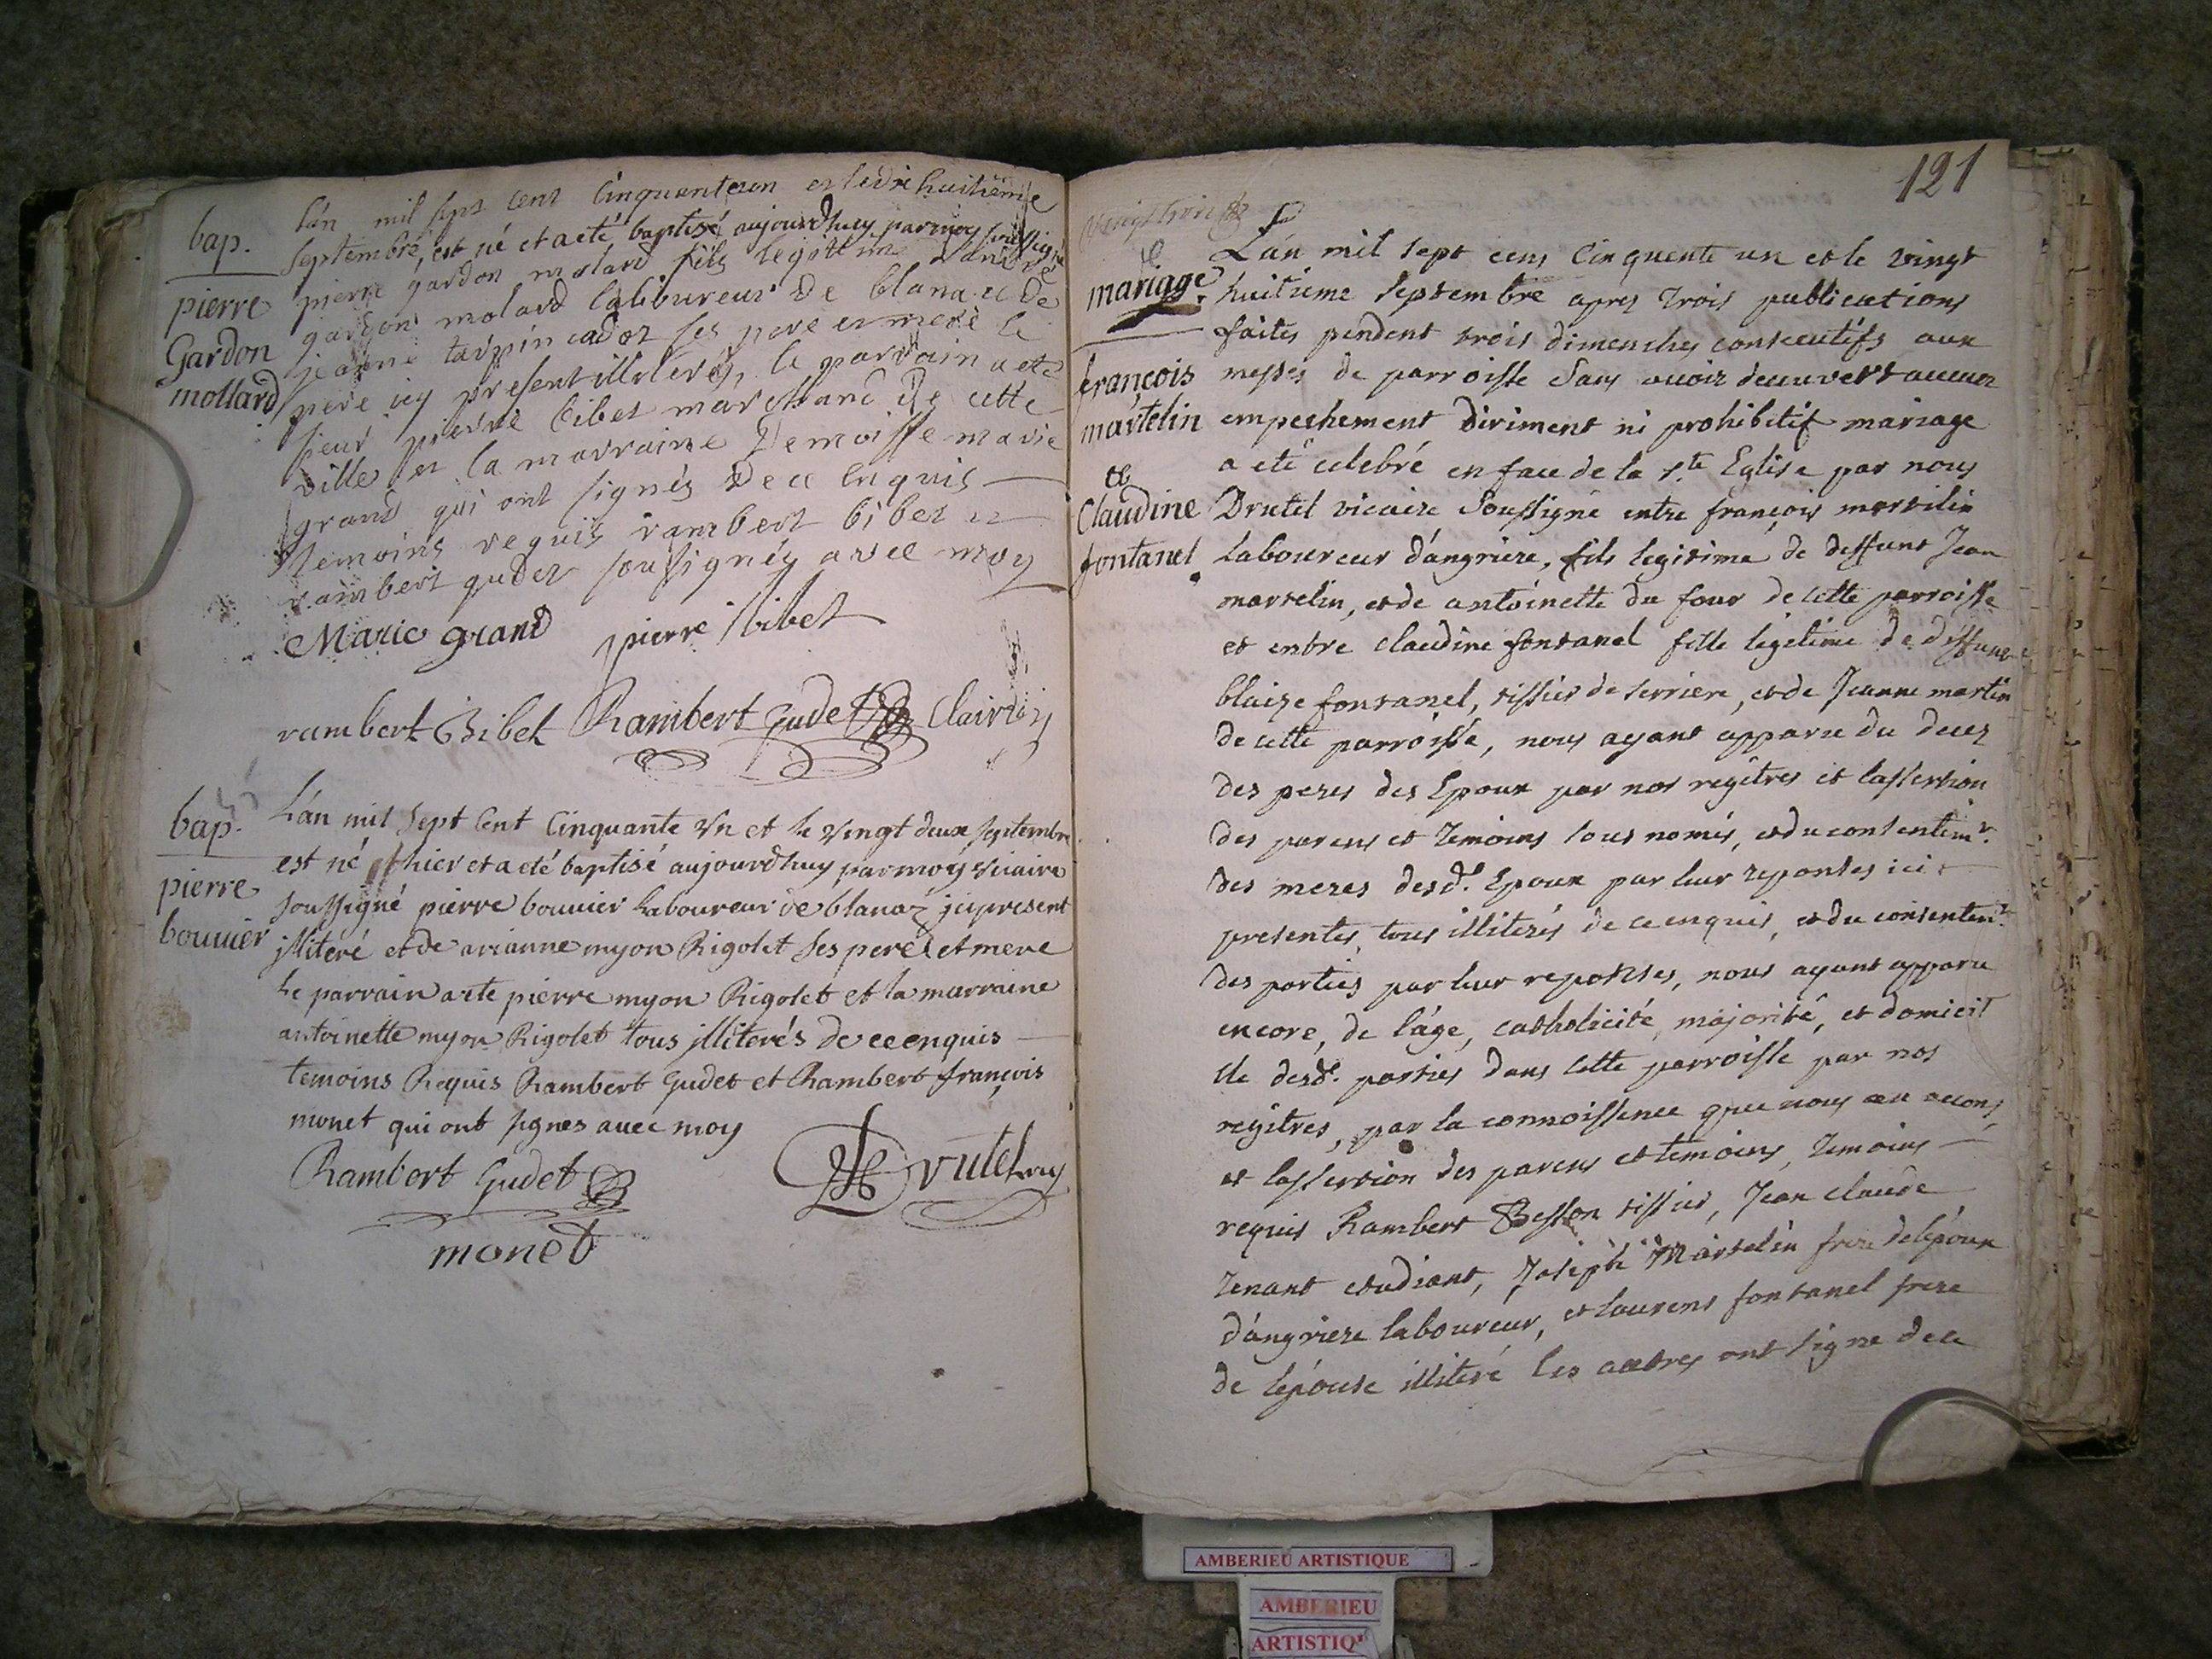 bap.
pierre
Gardon
mollard
lán mil sept cent Cinquanteun et le dix huitieme
septembre, est né et a eté baptisé aujourdhuy par moy soussigné
pierre gardon molard fils legitime dandré
gardon molard laboureur de blanaz et de
jeanne tarpin cador ses pere et mere le
pere icy present illiteré, le parrain a eté
sieur pierre bibet marchand de cette
ville et la marraine Demoisse marie
grand qui ont signés de ce enquis
temoins requis rambert bibet et
rambert gudet sousignés avec moy
Marie grand pierre bibet
rambert Bibet Rambert Gudet
bap.
pierre
bouvier
Lán mil Sept Cent Cinquante Un et le Vingt deux septembre
est né hier et a eté baptisé aujourdhuy par moy Vicaire
soussigné pierre bouvier laboureur de blanaz icy present
jlliteré et de arianne myon Rigolet ses pere et mere
le parrain a ete pierre myon Rigolet et la marraine
antoinette myon Rigolet tous jlliterés de ce enquis
temoins Requis Rambert Gudet et Rambert françois
monet qui ont signes avec moy
Rambert Gudet Drutel vic
monet
121
mariage
françois
martelin
&
Claudine
fontanel
Lán mil sept cens Cinquente un et le vingt
huitieme septembre apres trois publications
faites pendent trois dimenches consecutifs aux
messes de parroisse Sans avoir decouvert aucun
empechement diriment ni prohibitif mariage
a eté celebré en face de la s.te Eglise par nous
Drutel vicaire Soussigné entre françois martelin
laboureur d'angriere, fils legitime de deffunt Jean
martelin, et de antoinette du four de cette parroisse
et entre claudine fontanel fille legitime de deffunt
blaize fontanel, tissier de serriere, et de Jeanne martin
de cette parroisse, nous ayant apparu du decez
des peres des Epoux par nos regitres et lassertion
des parens et temoins sous només, et du consentemt.
des meres desd. Epoux par leur reponses ici
presentes, tous illiterés de ce enquis, et du consentemt.
des parties par leur reponses, nous ayant apparu
encore, de láge, catholicité, majorité, et domicil
le desd. parties dans cette parroisse par nos
regitres, par la connoissence que nous en avons,
et lassertion des parens et temoins, temoins
requis Rambert Besson tissier, Jean claude
tenant etudiant, Joseph Martelin frere delépoux
d'angriere laboureur, et laurens fontanel frere
de lépouse illiteré les autres ont signe de ce
AMBERIEU ARTISTIQUE
AMBERIEU
ARTISTIQ